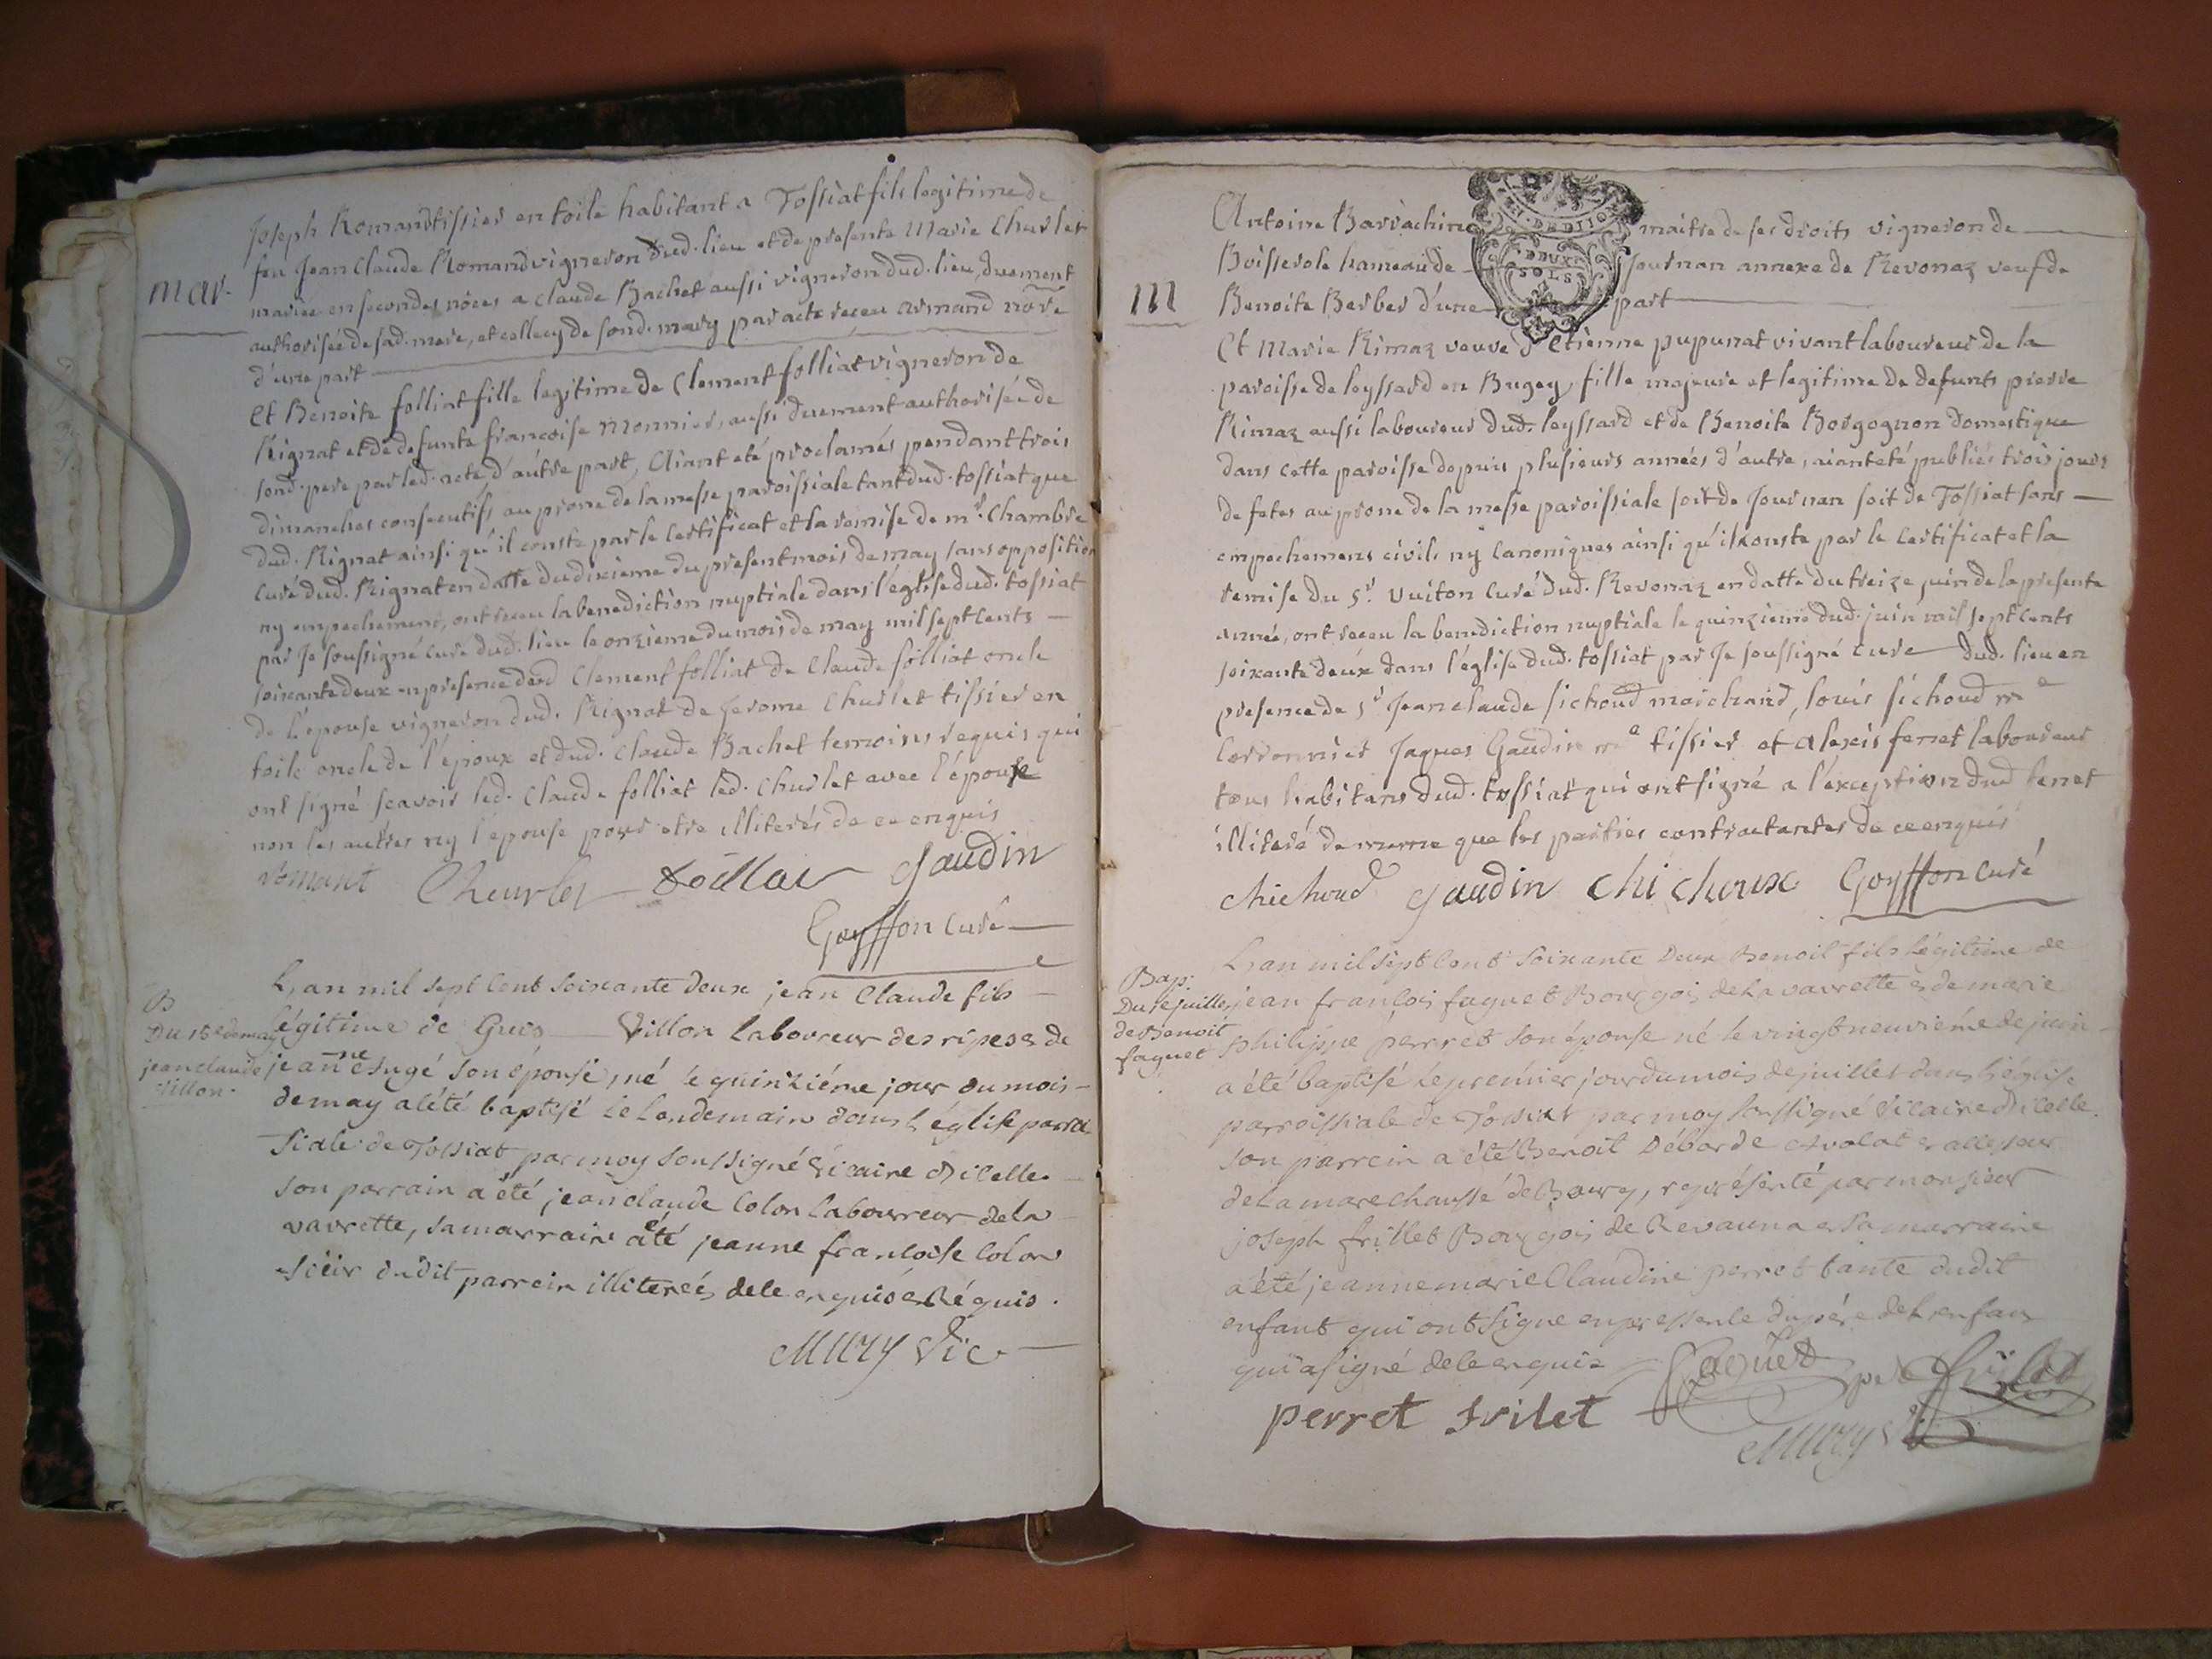 Joseph Romand tissier en toile habitant a Tossiat fils legitime de
feu Jean Claude Romand vigneron dud. lieu et de presente Marie Churlet
mar.
mariée en secondes nôces a Claude Bachet aussi vigneron dud. lieu, duement
authorisée de sad. mere, et celle cy de sond. mary par acte receu Armand nore
d'une part
Et Benoite folliat fille legitime de Clement folliat vigneron de
Rignat et de defunte francoise Monnier, aussi duement authorisée de
sond. pere par led. acte d'autre part, Aiant eté proclamés pendant trois
dimanches consecutifs au prone de la messe paroissiale tant dud. tossiat que
dud. Rignat ainsi qu'il conste par le certificat et la remise de mr. Chambre
curé dud. Rignat en datte du dixieme du present mois de may sans opposition
ny empechement, ont receu la benediction nuptiale dans l'église dud. tossiat
par Je soussigné curé dud. lieu le onzieme du mois de may mil sept cents
soixante deux en presence dud Clement folliat de Claude folliat oncle
de l'epouse vigneron dud. Rignat de Jerome Churlet tissier en
toile oncle de l'époux et dud. Claude Bachet temoins requis qui
ont signé scavoir led. Claude folliat led. Churlet avec l'époux
non les autres ny l'épouse pour etre illiterés de ce enquis
romant Cheurlet foillat Gaudin
Goyffon curé
B
Du 15e de may
jean claude
Villon.
L'an mil sept cent soixante deux jean Claude fils
légitime de Guis Villon laboureur des ripes & de
jeanne Sugé son épouse, né le quinziéme jour du mois
de may a été baptisé le lendemain dans l'église parroi
siale de Tossiat par moy soussigné vicaire d'icelle.
son parrain a été jean claude Colon laboureur de la
vavrette, sa marraine a été jeanne francoise Colon
sœur dudit parrein illiterés de ce enquis & Réquis.
Mury Vic
Antoine Barrachin maitre de ses droits vigneron de
Boisserole hameau de Journan annexe de Revonaz veuf de
M
Benoite Berber d'une part
Et Marie Rimaz veuve d'Etienne pupunat vivant laboureur de la
paroisse de leyssard en Bugey, fille majeure et legitime de defunts pierre
Rimaz aussi laboureur dud. leyssard et de Benoite Borgognon domestique
dans cette paroisse depuis plusieurs années d'autre, aiant eté publiés trois jours
de fetes au prone de la messe paroissiale soit de Journan soit de Tossiat sans
empechemens civils ny canoniques ainsi qu'il conste par le certificat et la
remise du Sr. Vuiton curé dud. Revonaz en datte du treize juin de la presente
année, ont receu la benediction nuptiale le quinzieme dud. juin mil sept cents
soixante deux dans l'église dud. tossiat par Je soussigné curé dud. lieu en
presence de Sr Jean claude sichoud marchand, louis sichoud me
Cordonnier Jaques Gaudin me tissier et Alexis ferret laboureur
tous habitans dud. tossiat qui ont signé a l'exception dud ferret
illiteré de meme que les parties contractantes de ce enquis
chichoud Gaudin chichoux Goyffon curé
Bap.
Du 1e juillet
de Benoit
faguet
L'an mil sept cent soixante deux Benoit fils légitime de
jean françois faguet Bourgois de la vavrette & de marie
philippe perret son épouse né le vingt neuviéme de juin
a été baptisé le premier jour du mois de juillet dans l'église
parroissiale de Tossiat par moy soussigné vicaire d'icelle.
son parrein a été Benoit Débarde
de la marechaussé de Bourg, représenté par monsieur
joseph frillet Bourgois de Revauna & sa marraine
a été jeanne marie Claudine perret tante dudit
enfant qui ont signe en pressente du pére de l'enfant
qui a signé de ce enquis
faguet
perret frilet
Mury